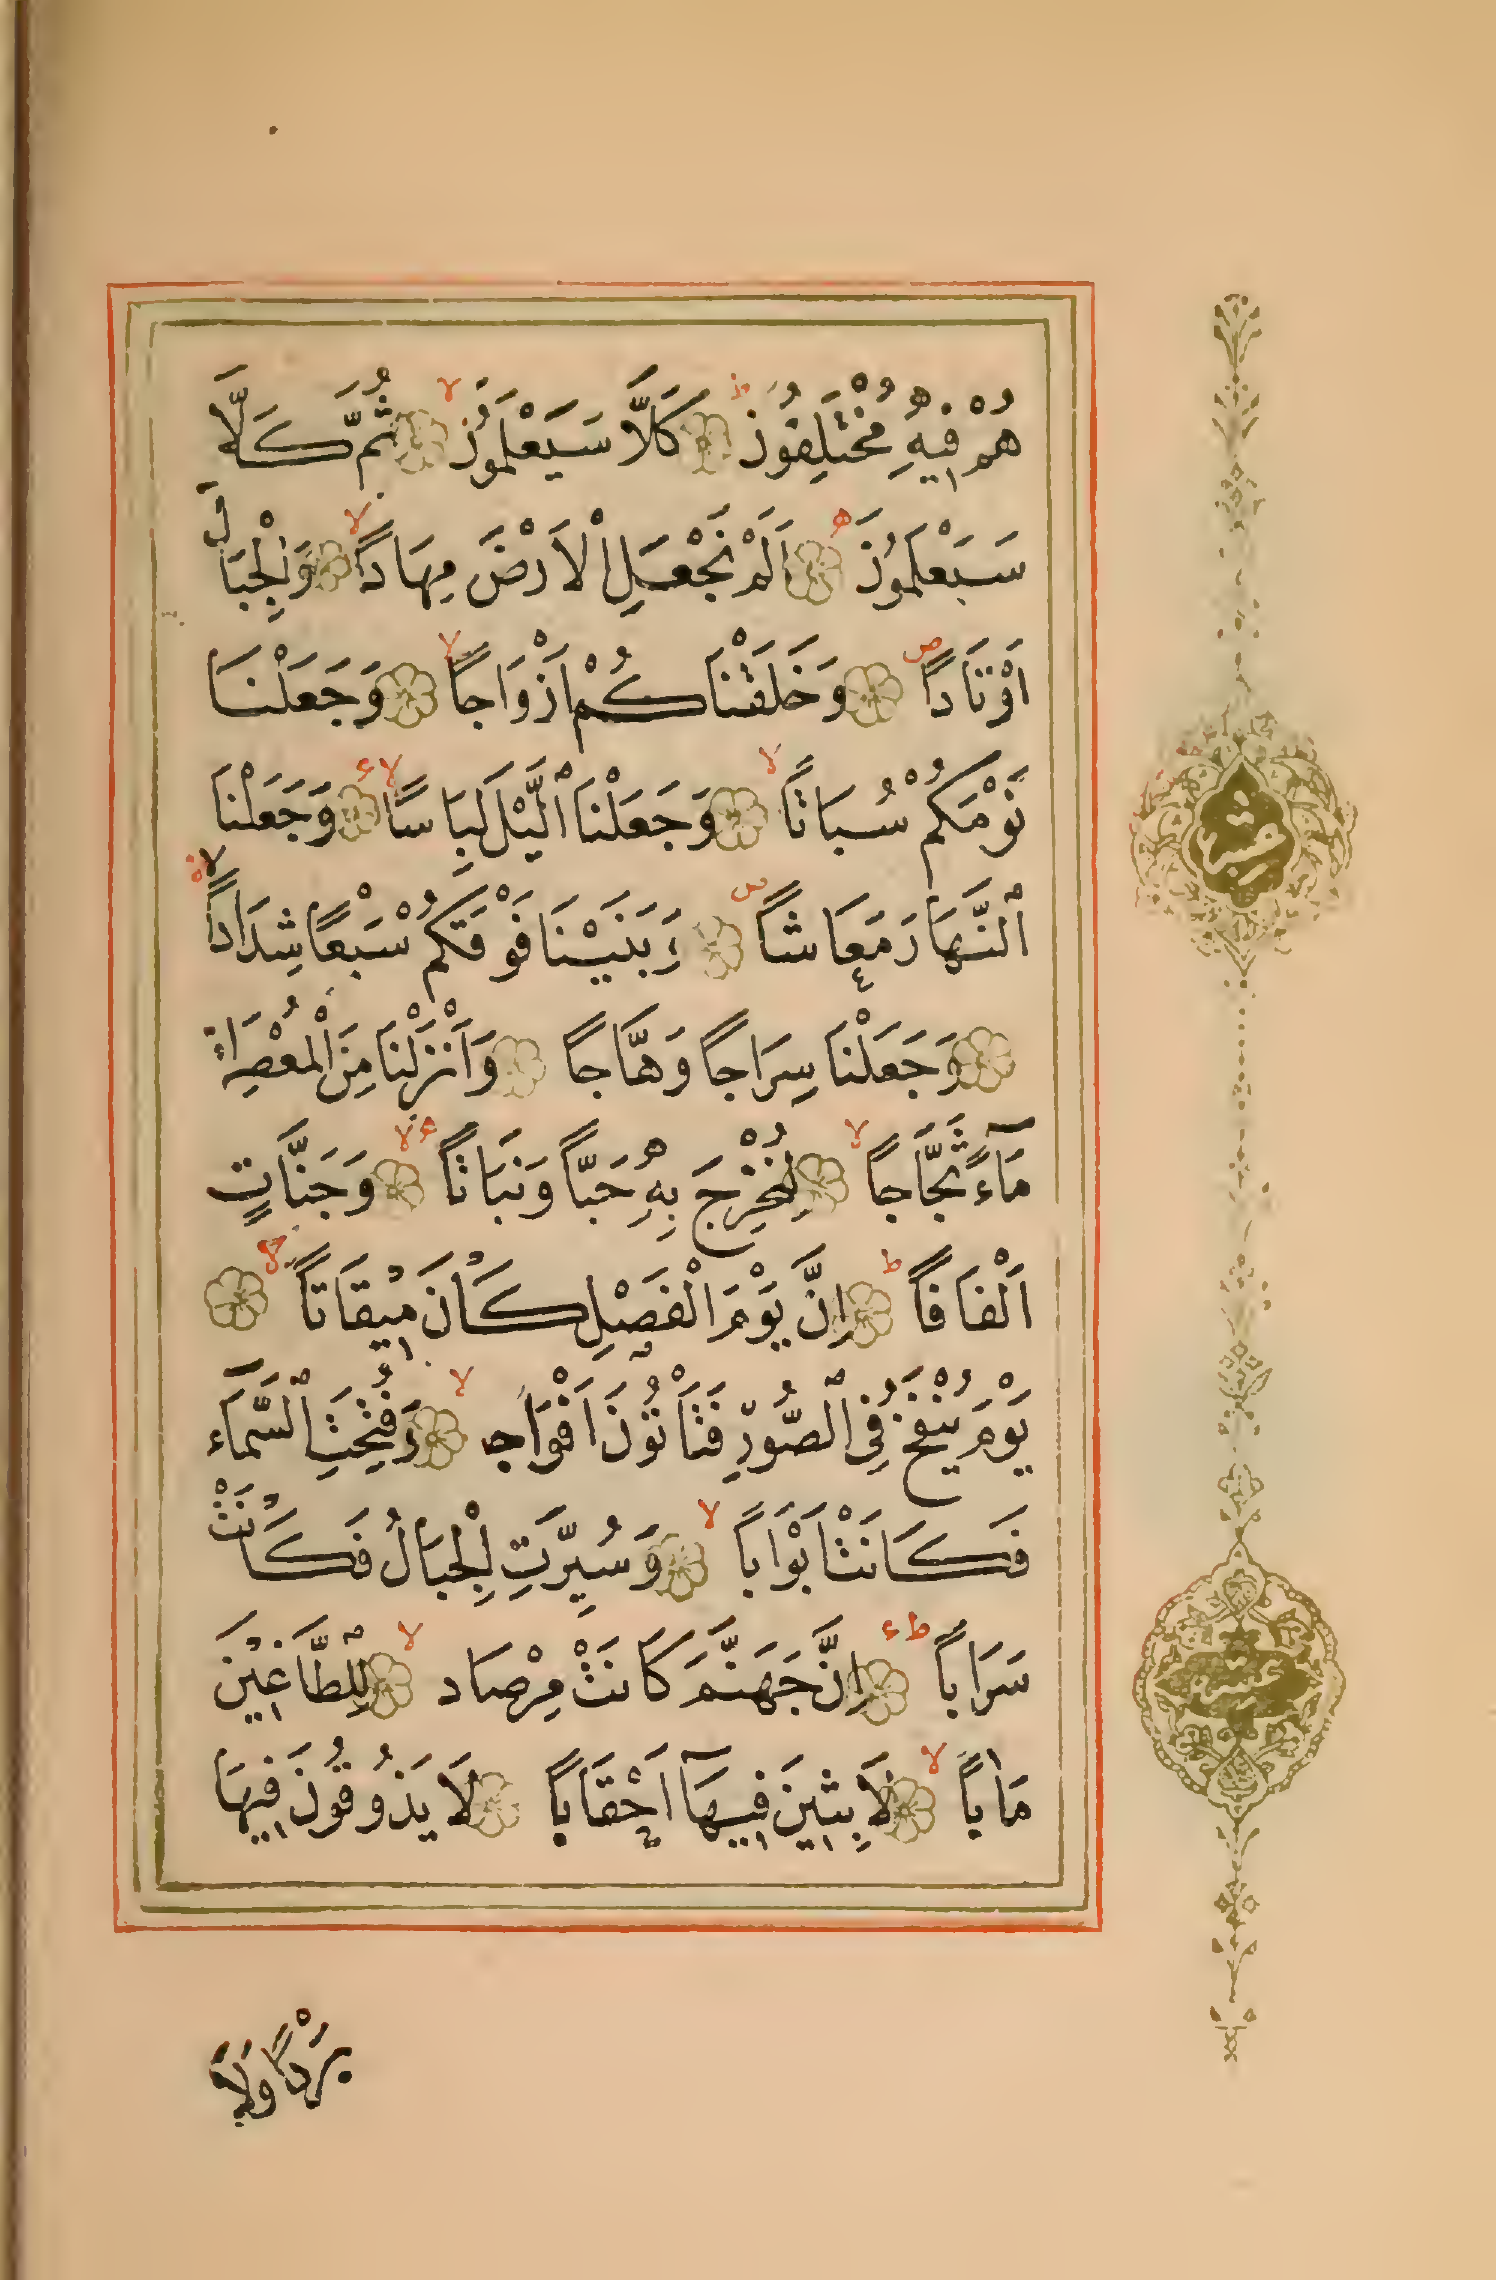 هُمْ فِيهِ مُخْتَلِفُونَ ط كَلَّا سَيَعْلَمُونَ لا ثُمَّ كَلَّا
سَيَعْلَمُونَ ه اَلَمْ نَجْعَلِ الْاَرْضَ مِهَادًا لا وَالْجِبَالَ
اَوْتَادًا ص وَخَلَقْنَاكُمْ اَزْوَاجًا لا وَجَعَلْنَا
نَوْمَكُمْ سُبَاتًا لا وَجَعَلْنَا الَّيْلَ لِبَاسًا لا وَجَعَلْنَا
النَّهَارَ مَعَاشًا ص وَبَنَيْنَا فَوْقَكُمْ سَبْعًا شِدَادًا لا
وَجَعَلْنَا سِرَاجًا وَهَّاجًا وَاَنْزَلْنَا مِنَ الْمُعْصِرَاتِ
مَآءً ثَجَّاجًا لا لِنُخْرِجَ بِهِ حَبًّا وَنَبَاتًا لا وَجَنَّاتٍ
اَلْفَافًا ط اِنَّ يَوْمَ الْفَصْلِ كَانَ مِيقَاتًا لا
يَوْمَ يُنْفَخُ فِي الصُّورِ فَتَأْتُونَ اَفْوَاجًا لا وَفُتِحَتِ السَّمَآءُ
فَكَانَتْ اَبْوَابًا لا وَسُيِّرَتِ الْجِبَالُ فَكَانَتْ
سَرَابًا ط اِنَّ جَهَنَّمَ كَانَتْ مِرْصَادًا لا لِلطَّاغِينَ
مَاٰبًا لا لَابِثِينَ فِيهَآ اَحْقَابًا لَا يَذُوقُونَ فِيهَا
بَرْدًا وَلَا